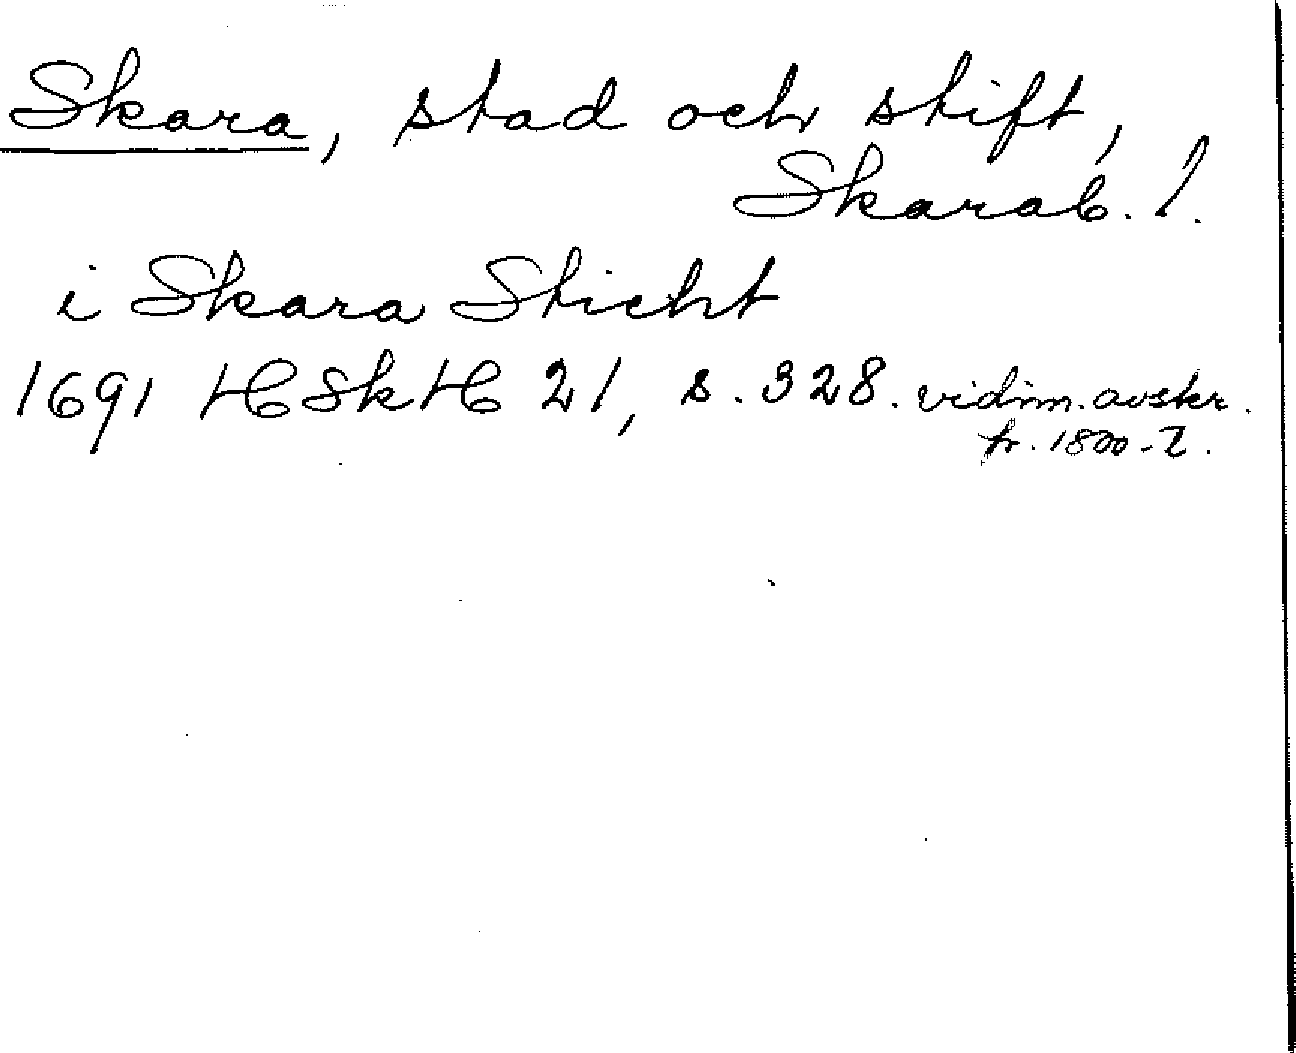 Skara, stad och stift,
Skarab. l.
i Skara Sticht
1691 HSkH 21, s. 328. vidim. avskr.
fr. 1800-t.